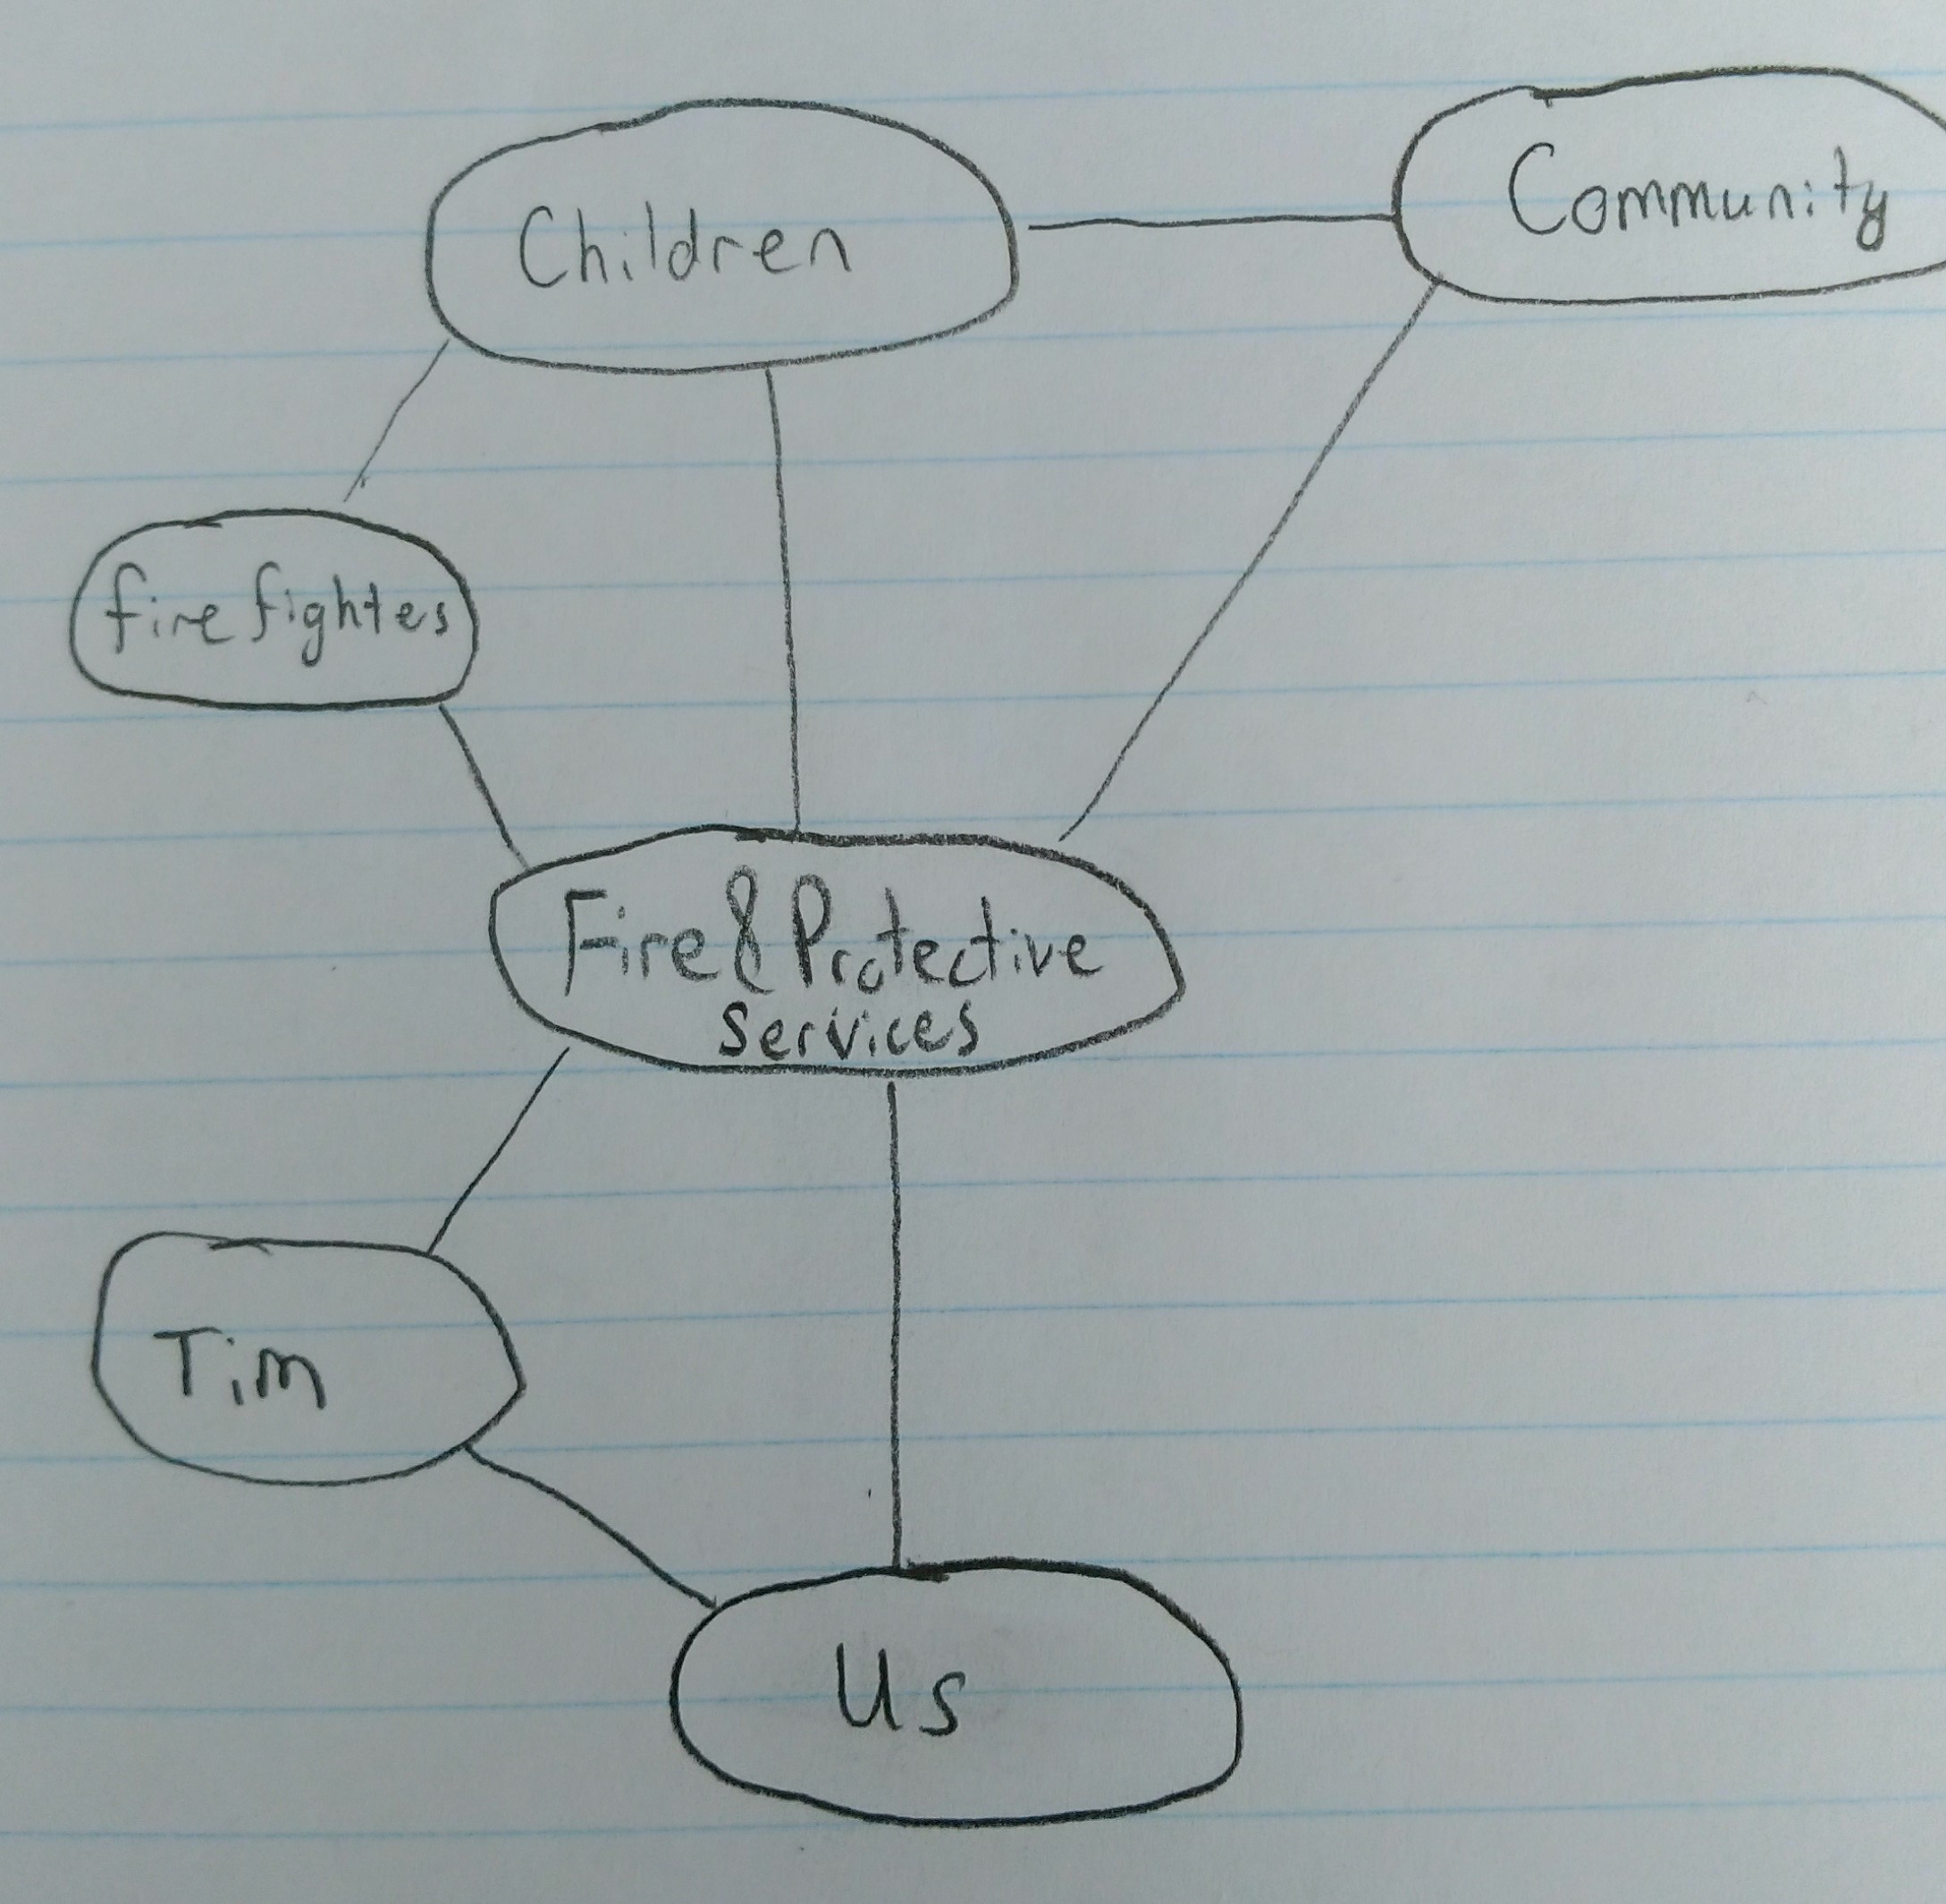 Children
Community
fire fightes
Fire & Protective
Services
Tim
Us